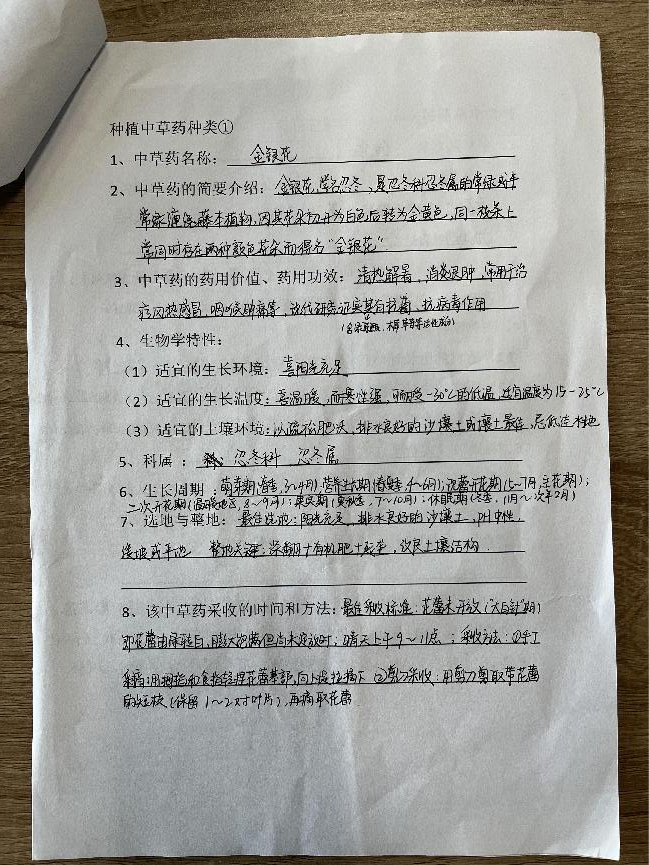 种植中草药种类①
1、中草药名称: 金银花
2、中草药的简要介绍: 金银花,学名忍冬,是忍冬科忍冬属的常绿或半
常绿 藤本植物,因其花朵初开为白色后转为金黄色,同一枝条上
常同时存在两种颜色花朵而得名“金银花”
3、中草药的药用价值、药用功效: 清热解毒,消炎退肿,常用于治
疗风热感冒,咽喉肿痛等,现代研究证实其有抗菌、抗病毒作用
(含 木犀草苷等活性成分)
4、生物学特性:
(1)适宜的生长环境: 喜阳光充足
(2)适宜的生长温度: 喜温暖,耐寒性强,可耐受-30℃的低温,适宜温度为15-25℃
(3)适宜的土壤环境: 以疏松肥沃,排水良好的沙壤土或壤土最佳,忌低洼
5、科属: 忍冬科 忍冬属
6、生长周期: 萌芽期(春季,3~4月);营养生长期(春 4~6月);现蕾开花期(5~7月,主花期);
二次开花期(温暖地区,8~9月);果实期(夏秋季,7~10月);休眠期(冬季,11月~次年2月)
7、选地与整地: 最佳选地:阳光充足,排水良好的沙壤土,pH中性,
缓坡或平地 整地关键:深翻+有机肥+起垄,改良土壤结构.
8、该中草药采收的时间和方法: 最佳采收标准:花蕾未开放(“大白针”期)
即花蕾由绿转白,膨大饱满但尚未绽放时;晴天上午9~11点;采收方法:①手工
采摘:用拇指和食指轻捏花蕾基部,向上提拉摘下 ②剪刀采收:用剪刀剪取带花蕾
的短枝(保留1~2对叶片),再摘取花蕾